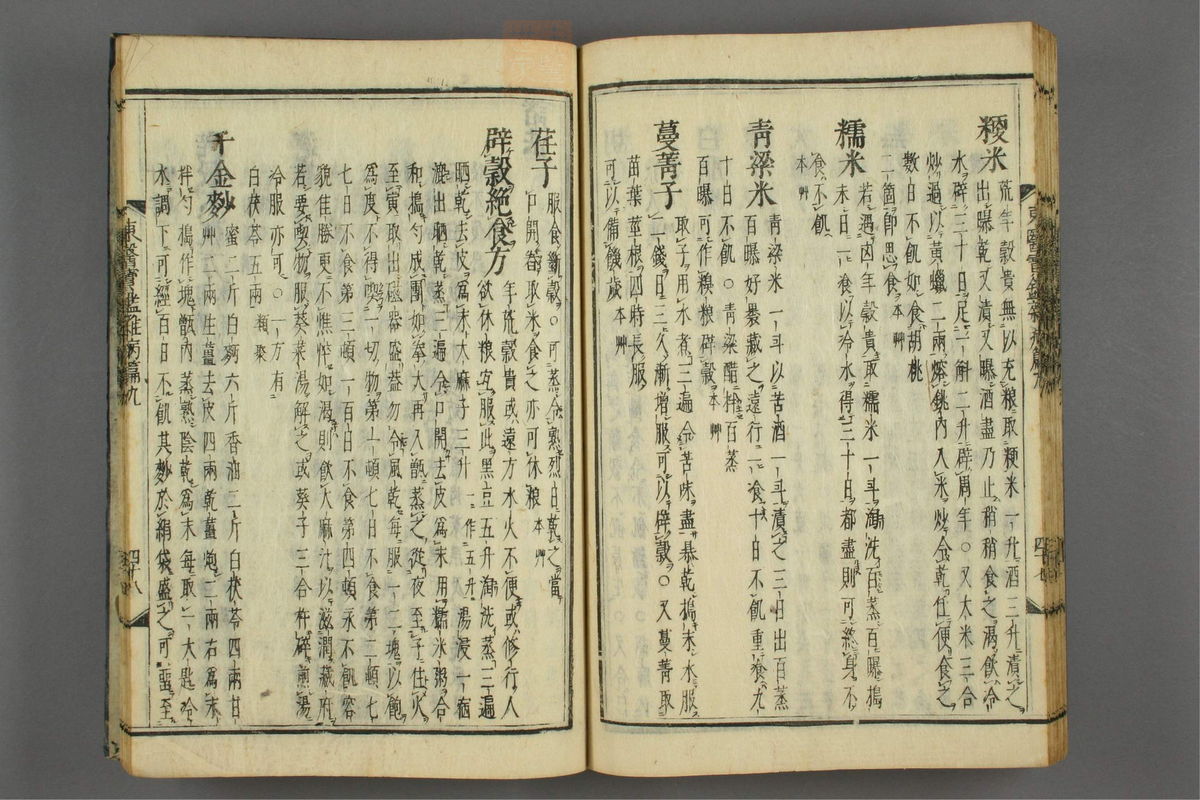 粳米 荒年穀貴無以充粮取粳米一升酒三升漬之
出曝乾又漬又曝酒盡乃止稍稍食之渴飲冷
水辟三十日足一斛二升辟周年○又大米三合
炒過以黃蠟二兩熔銚內入米炒令乾任便食之
數日不飢如食胡桃
二箇卽思食 本艸
糯米 若遇凶年穀貴取糯米一斗淘洗百蒸百曝搗
末日一飡以冷水得三十日都盡則可終身不
食不飢
本艸
靑粱米 靑粱米一斗以苦酒一斗漬之三日出百蒸
百曝好裹藏之遠行一飡十日不飢重飡九
十日不飢○靑粱醋拌百蒸
百曝可作糗粮辟穀 本艸
蔓菁子 取子用水煮三遍令苦味盡暴乾搗末水服
二錢日三久漸增服可以辟穀○又蔓菁取
苗葉莖根四時長服
可以備饑歲 本艸
東醫寶鑑雜病篇九
荏子 服食斷穀○可蒸令熟烈日乾之當
口開舂取米食之亦可休粮 本艸
辟穀絕食方 年荒穀貴或遠方水火不便或修行人
欲休粮宜服此黑豆五升淘洗蒸三遍
晒乾去皮爲末大麻子三升 一作五升 湯浸一宿
漉出晒乾蒸三遍令口開去皮爲末用糯米粥合
和搗勻成團如拳大再入甑蒸之從夜至子住火
至寅取出磁器盛盖勿令風乾每服一二塊以飽
爲度不得喫一切物第一頓七日不食第二頓七
七日不食第三頓一百日不食第四頓永不飢容
貌佳勝更不憔悴如渴則飮大麻汁以滋潤藏府
若要喫物服葵菜湯解之或葵子三合杵碎煎湯
冷服亦可○一方有
白茯苓五兩 類聚
千金麨 蜜二斤白麪六斤香油二斤白茯苓四兩甘
艸二兩生薑去皮四兩乾薑炮二兩右爲末
拌勻搗作塊甑內蒸熟陰乾爲末每取一大匙冷
水調下可經百日不飢其麨於絹袋盛之可留至
東醫寶鑑雜病篇九
四十八